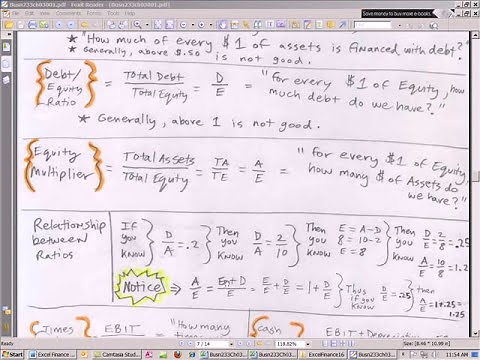 Busn233ch03001.pdf - Foxit Reader - [Busn233Ch03001.pdf]
Save money to buy more e-books.
* "How much of every $1 of assets is financed with debt?"
* Generally, above $.50 is not good.
Debt/Equity Ratio = Total Debt / Total Equity = D / E = "for every $1 of Equity, how much debt do we have?"
* Generally, above 1 is not good.
Equity Multiplier = Total Assets / Total Equity = TA / TE = A / E = "for every $1 of Equity, how many $ of Assets do we have?"
Relationship between Ratios
If you know D/A = .2 Then you know D/A = 2/10 Then you know E = A-D 8 = 10-2 8 = 8 Then you know D/E = 2/8 = .25 A/E = 10/8 = 1.2
Notice ⇒ A/E = E+D/E = E/E + D/E = 1 + D/E Thus if you know D/E = .25 then A/E = 1+.25 = 1.25
Times EBIT "How many times Cash EBIT + Depreciation
7 / 14 118.82% Size: [8.46 * 10.99 in]
Start Excel Finance Camtasia Studio Busn233Ch03 ExcelFinance16 Busn233Ch03 Busn233ch03001 11:54 AM